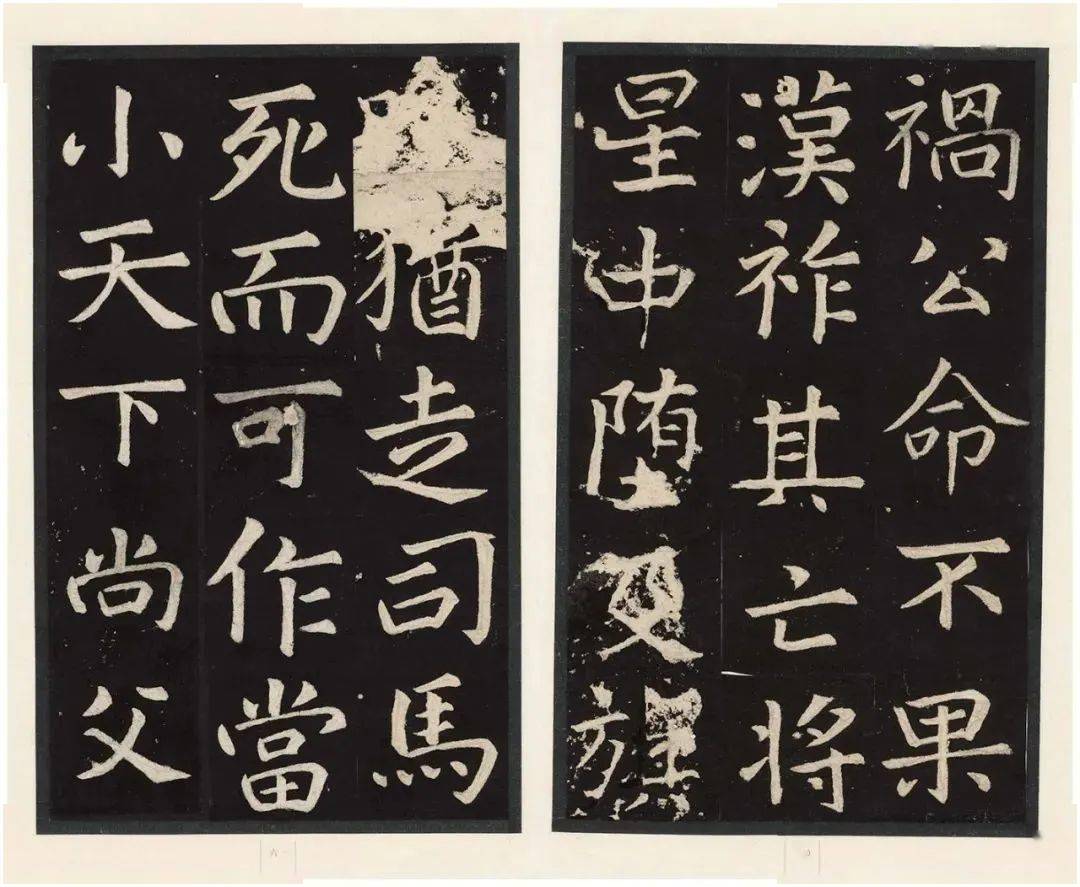 禍公命不果
漢祚其亡將
星中堕反旗
猶走司馬
死而可作當
小天下尚父